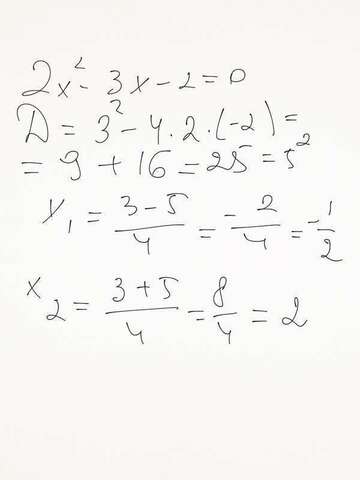 2x² - 3x - 2 = 0
D = 3² - 4 · 2 · (-2) =
= 9 + 16 = 25 = 5²
x₁ = (3 - 5)/4 = -2/4 = -1/2
x₂ = (3 + 5)/4 = 8/4 = 2